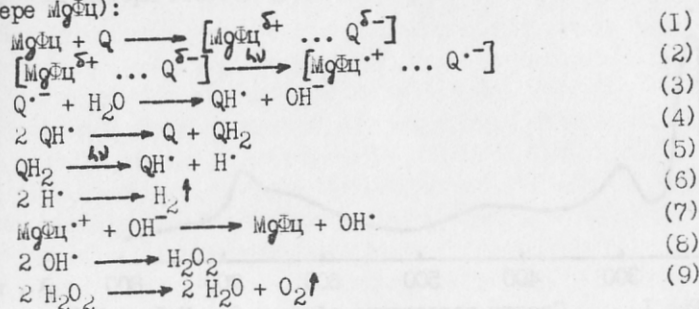 ере MgФц):
MgФц + Q ⟶ [MgФц^δ+ ... Q^δ−] (1)
[MgФц^δ+ ... Q^δ−] ⟶^hν [MgФц^·+ ... Q^·−] (2)
Q^·− + H₂O ⟶ QH· + OH⁻ (3)
2 QH· ⟶ Q + QH₂ (4)
QH₂ ⟶^hν QH· + H· (5)
2 H· ⟶ H₂↑ (6)
MgФц^·+ + OH⁻ ⟶ MgФц + OH· (7)
2 OH· ⟶ H₂O₂ (8)
2 H₂O₂ ⟶ 2 H₂O + O₂↑ (9)